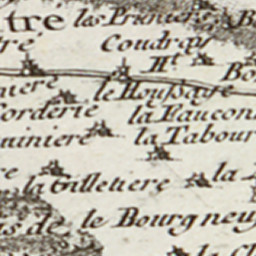 tré les Pruniers B
ré Coudray
Ht Bo
niere le Houssaye
Corderie la Faucon
uiniere la Tabour
la Gilletiere la
us de le Bourgneu
la